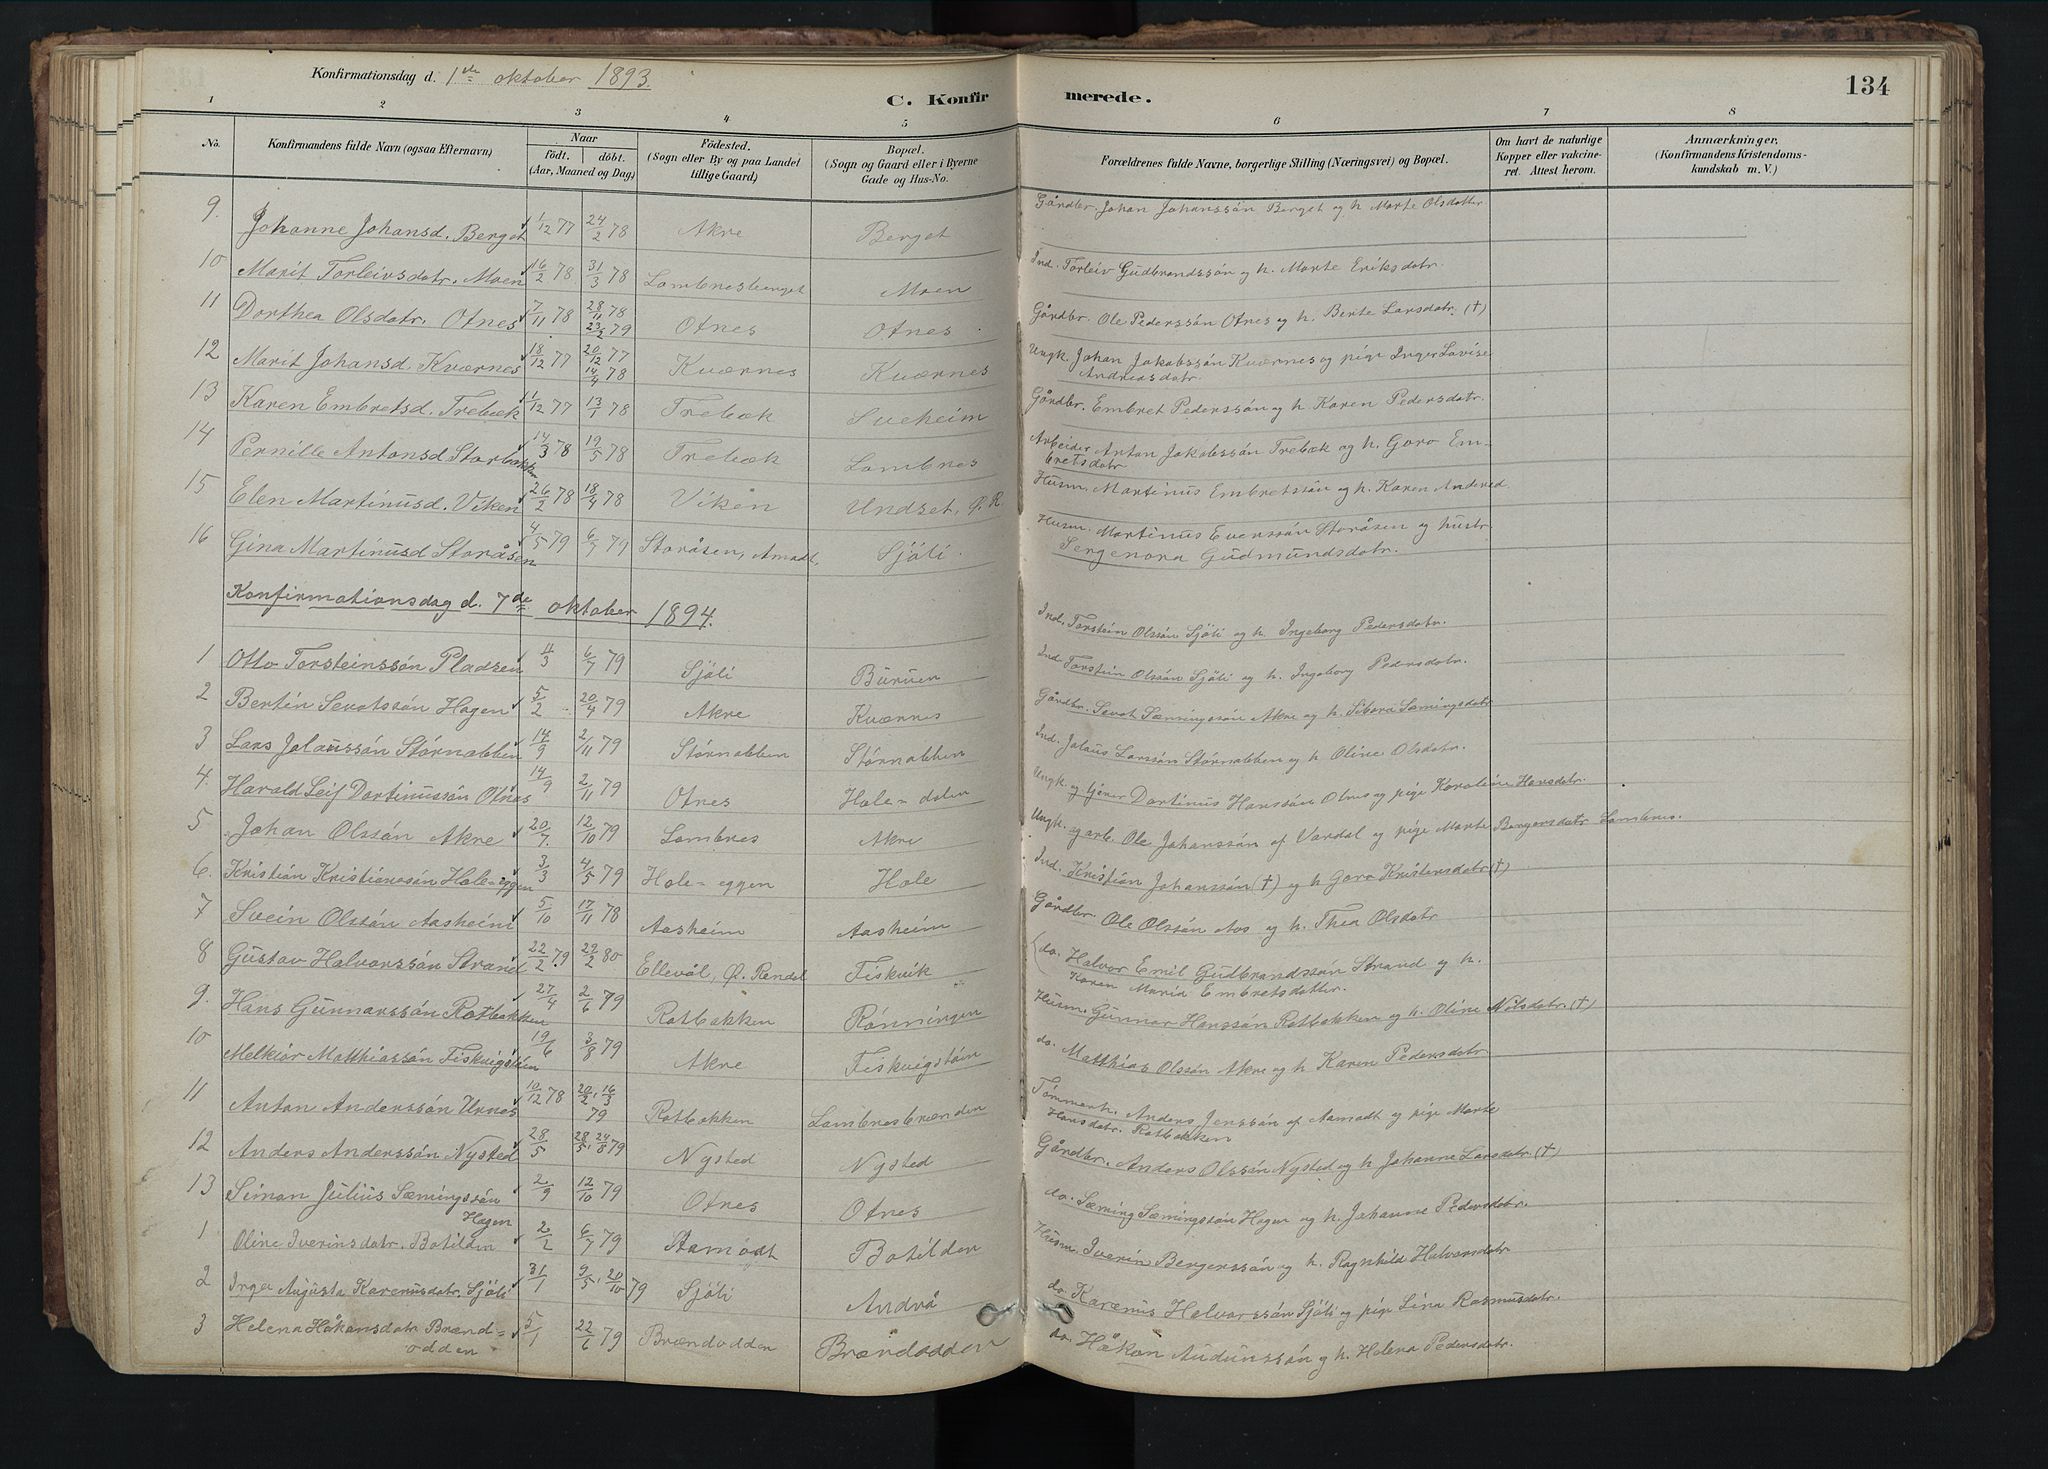 Konfirmationsdag d. 1de oktober 1893.
C. Konfirmerede.
134
1 2 3 4 5 6 7 8
No. Konfirmandens fulde Navn (ogsaa Efternavn) Naar født. døbt. (Aar, Maaned og Dag) Fødested. (Sogn eller By og paa Landet tillige Gaard) Bopæl. (Sogn og Gaard eller i Byerne Gade og Hus-No. Forældrenes fulde Navne, borgerlige Stilling (Næringsvei) og Bopæl. Om havt de naturlige Kopper eller vakcineret. Attest herom. Anmærkninger. (Konfirmandens Kristendomskundskab m. V.)
9 Johanne Johansd. Berget 1/12 77 24/2 78 Akre Berget Gårdbr. Johan Johanssön Berget og h. Marte Olsdatter
10 Marit Torleivsdatr. Moen 16/2 78 31/3 78 Lombnesberget Moen Ind. Torleiv Gudbrandssön og h. Marte Eriksdatr.
11 Dorthea Olsdatr. Otnes 7/11 78 28/11 78 23/2 79 Otnes Otnes Gårdbr. Ole Pederssön Otnes og h. Berte Larsdatr. (†)
12 Marit Johansd. Kværnes 18/12 77 20/12 77 14/4 78 Kværnes Kværnes Ungk. Johan Jakobssön Kværnes og pige Inger Lovise
Andreasdatr.
13 Karen Embretsd. Trebæk 1/12 77 13/1 78 Trebæk Sveheim Gårdbr. Embret Pederssön og h. Karen Pedersdatr.
14 Pernille Antonsd Storbakken 14/3 78 19/5 78 Trebæk Lombnes Arbeider Anton Jakobssön Trebæk og h. Goro Em-
bretsdatr
15 Elen Martinusd. Viken 26/2 78 18/4 78 Viken Undset, Ø. R. Husm. Martinus Embretssön og h. Karen Andersd
16 Gina Martinusd Storåsen 4/5 79 6/7 79 Storåsen, Amodt, Sjöli Husm. Martinus Everssön Storåsen og hustr
Sergenora Gudmundsdatr.
Konfirmationsdag d. 7de oktober 1894.
Ind. Torstein Olssön Sjöli og h. Ingeborg Pedersdatr.
1 Otto Torsteinssön Pladsen 4/3 6/7 79 Sjöli Buruen Ind Torstein Olssön Sjöli og h. Ingeborg Pedersdatr.
2 Bertin Sevatssön Hagen 5/2 20/4 79 Akre Kværnes Gårdbr. Sevat Sæmingssön Akre og h. Sæmingsdatr
3 Lars Jolaussön Störnabben 14/9 2/11 79 Störnabben Störnabben Ind. Jolaus Larssön Störnabben og h Oline Olsdatr.
4. Harald Leif Dortinussön Otnes 14/9 2/11 79 Otnes Hole-dalen Ungk. og Dortinus Hanssön Otnes og pige Karoline Hansdatr.
5 Johan Olssön Akre 20/7. 12/10 79 Lombnes Akre Ungk. og arb. Ole Johanssön af Vardal og pige Marte Bergersdatr Lombnes.
6. Kristian Kristianssön Hole-eggen 3/3 4/5 79 Hole-eggen Hole Ind. Kristian Johanssön (†) og h Goro Kristensdatr (†)
7 Svein Olssön Aasheim 5/10 17/11 78 Aasheim Aasheim Gårdbr. Ole Olssön Aas og h. Thea Olsdatr
8 Gustav Halvorssön Strand 22/2 79 22/2 80 Ellevål, Ø. Rendal Fiskvik do. Halvor Emil Gudbrandssön Strand og h.
Karen Maria Embretsdatter.
9. Hans Gunnarssön Rotbakken 27/4 2/6 79 Rotbakken Rönningen Husm. Gunnar Hanssön Rotbakken og h. Oline Nilsdatr. (†)
10 Melkior Matthiassön Fiskvigstöin 19/6 3/8 79 Akre Fiskvigstöin do. Matthias Olssön Akre og h Karen Pedersdatr
11 Anton Anderssön Urnes 10/12 78 20/2, 16/3 79 Rotbakken Lombnesbrænden Tömmerh. Anders Jenssön af Aamodt og pige Marte
Hansdatr. Rotbakken
12 Anders Anderssön Nysted 28/5 28/5, 24/8 79 Nysted Nysted Gårdbr. Anders Olssön Nysted og h Johanne Larsdatr (†)
13 Simon Julius Sæmingssön Hagen 2/9 12/10 79 Otnes Otnes do. Sæming Sæmingssön Hagen og h. Johanne Pedersdatr.
1 Oline Iverinsdatr. Botilden 2/2 6/7 79 Aamodt Botilden Husm. Iverin Bergerssön og h. Ragnhild Halvorsdatr
2 Inga Augusta Karenusdatr. Sjöli 31/1 9/5, 20/10 79 Sjöli Andrå do. Karenus Halvorssön Sjöli og pige Lina Rasmusdatr.
3 Helena Håkonsdatr Brænd-
odden 5/1 22/6 79 Brændodden Brændodden do. Håkon Audunssön og h. Helena Pedersdatr.